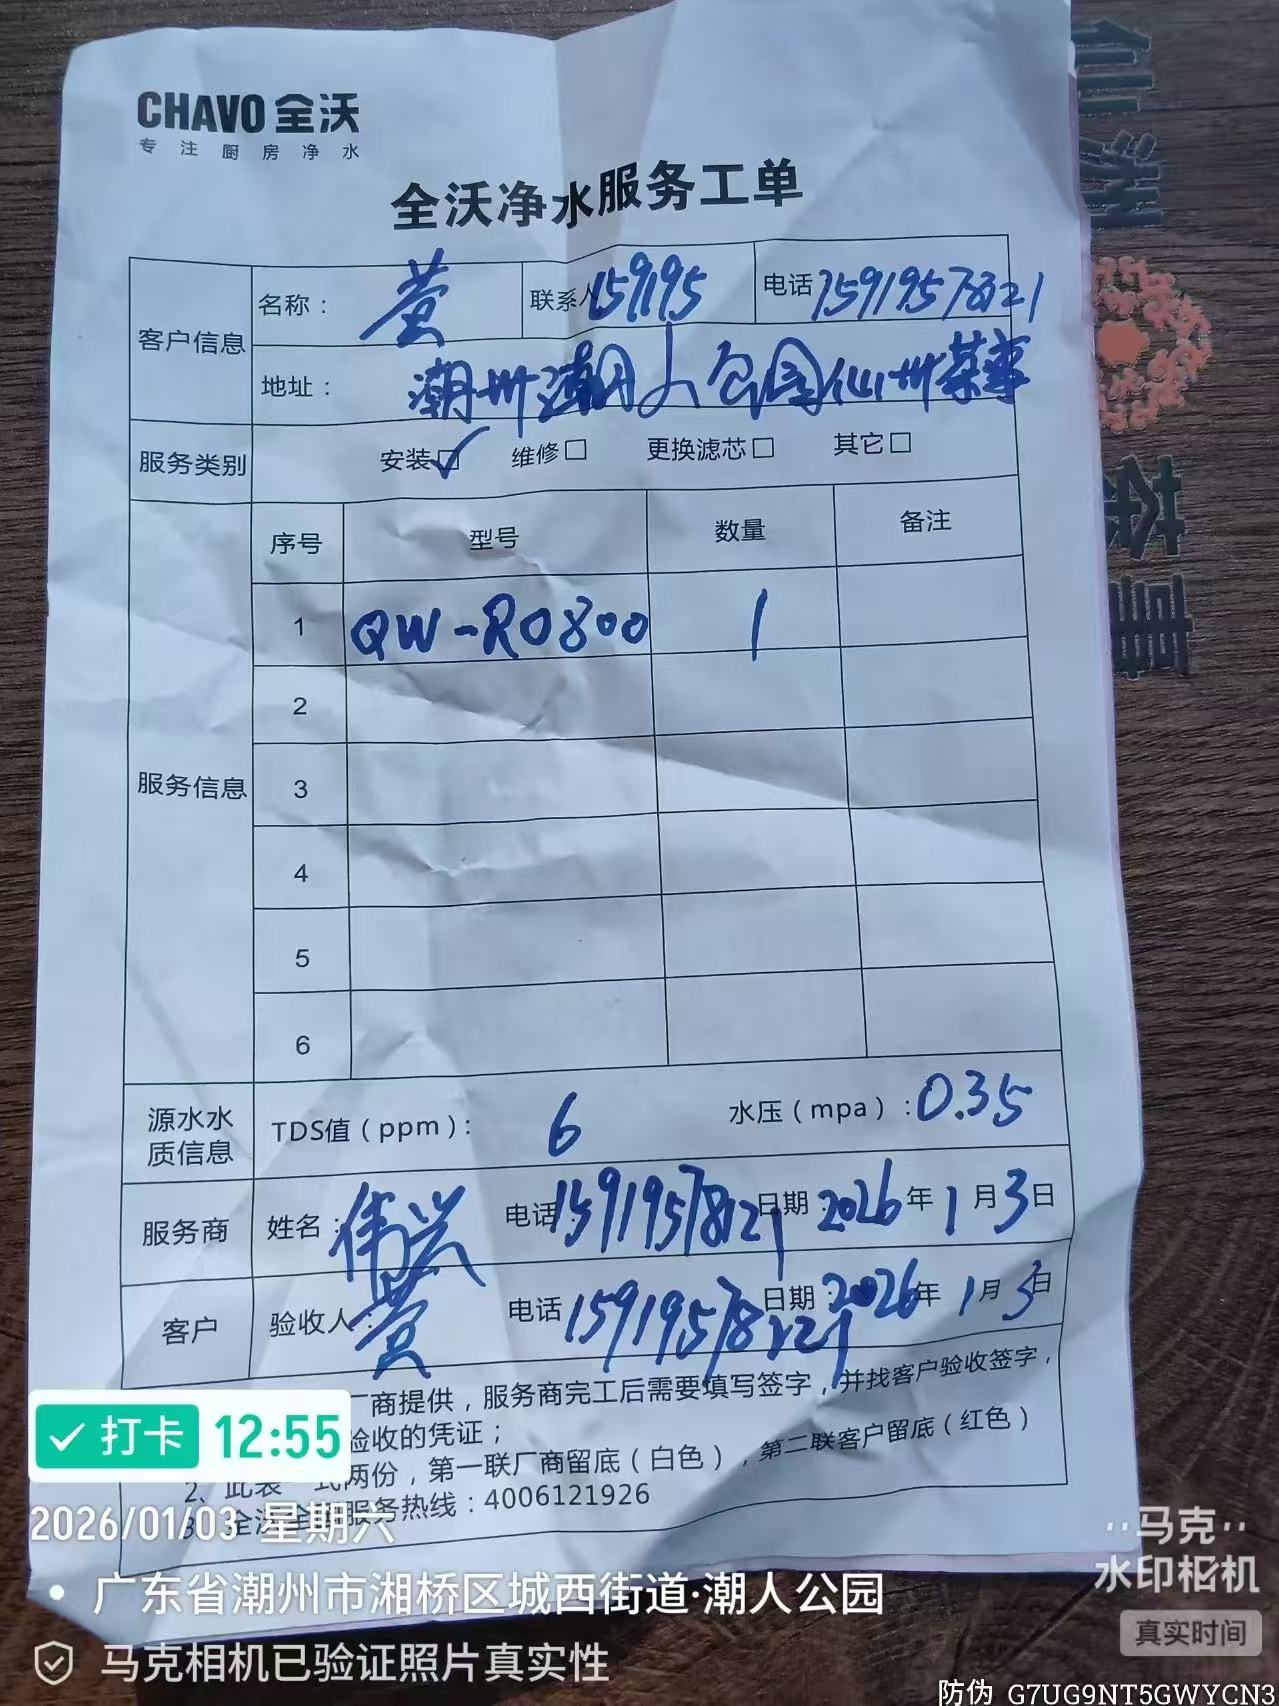 CHAVO 全沃
专注厨房净水
全沃净水服务工单
客户信息
名称： 萱 联系人 159195 电话 15919578321
地址： 潮州潮人公园仙州茶事
服务类别 安装☑ 维修□ 更换滤芯□ 其它□
服务信息
序号 型号 数量 备注
1 QW-RO800 1
2
3
4
5
6
源水水质信息 TDS值（ppm）： 6 水压（mpa）：0.35
服务商 姓名： 伟兴 电话： 日期：2026年1月3日
客户 验收人： 萱 电话 日期：2026年1月3日
厂商提供，服务商完工后需要填写签字，并找客户验收签字，
验收的凭证；
2、此表一式两份，第一联厂商留底（白色），第二联客户留底（红色）
3、全沃全国服务热线：4006121926
仙洲
茶事
打卡 12:55
2026/01/03 星期六
广东省潮州市湘桥区城西街道·潮人公园
马克相机已验证照片真实性
马克
水印相机
真实时间
防伪 G7UG9NT5GWYCN3